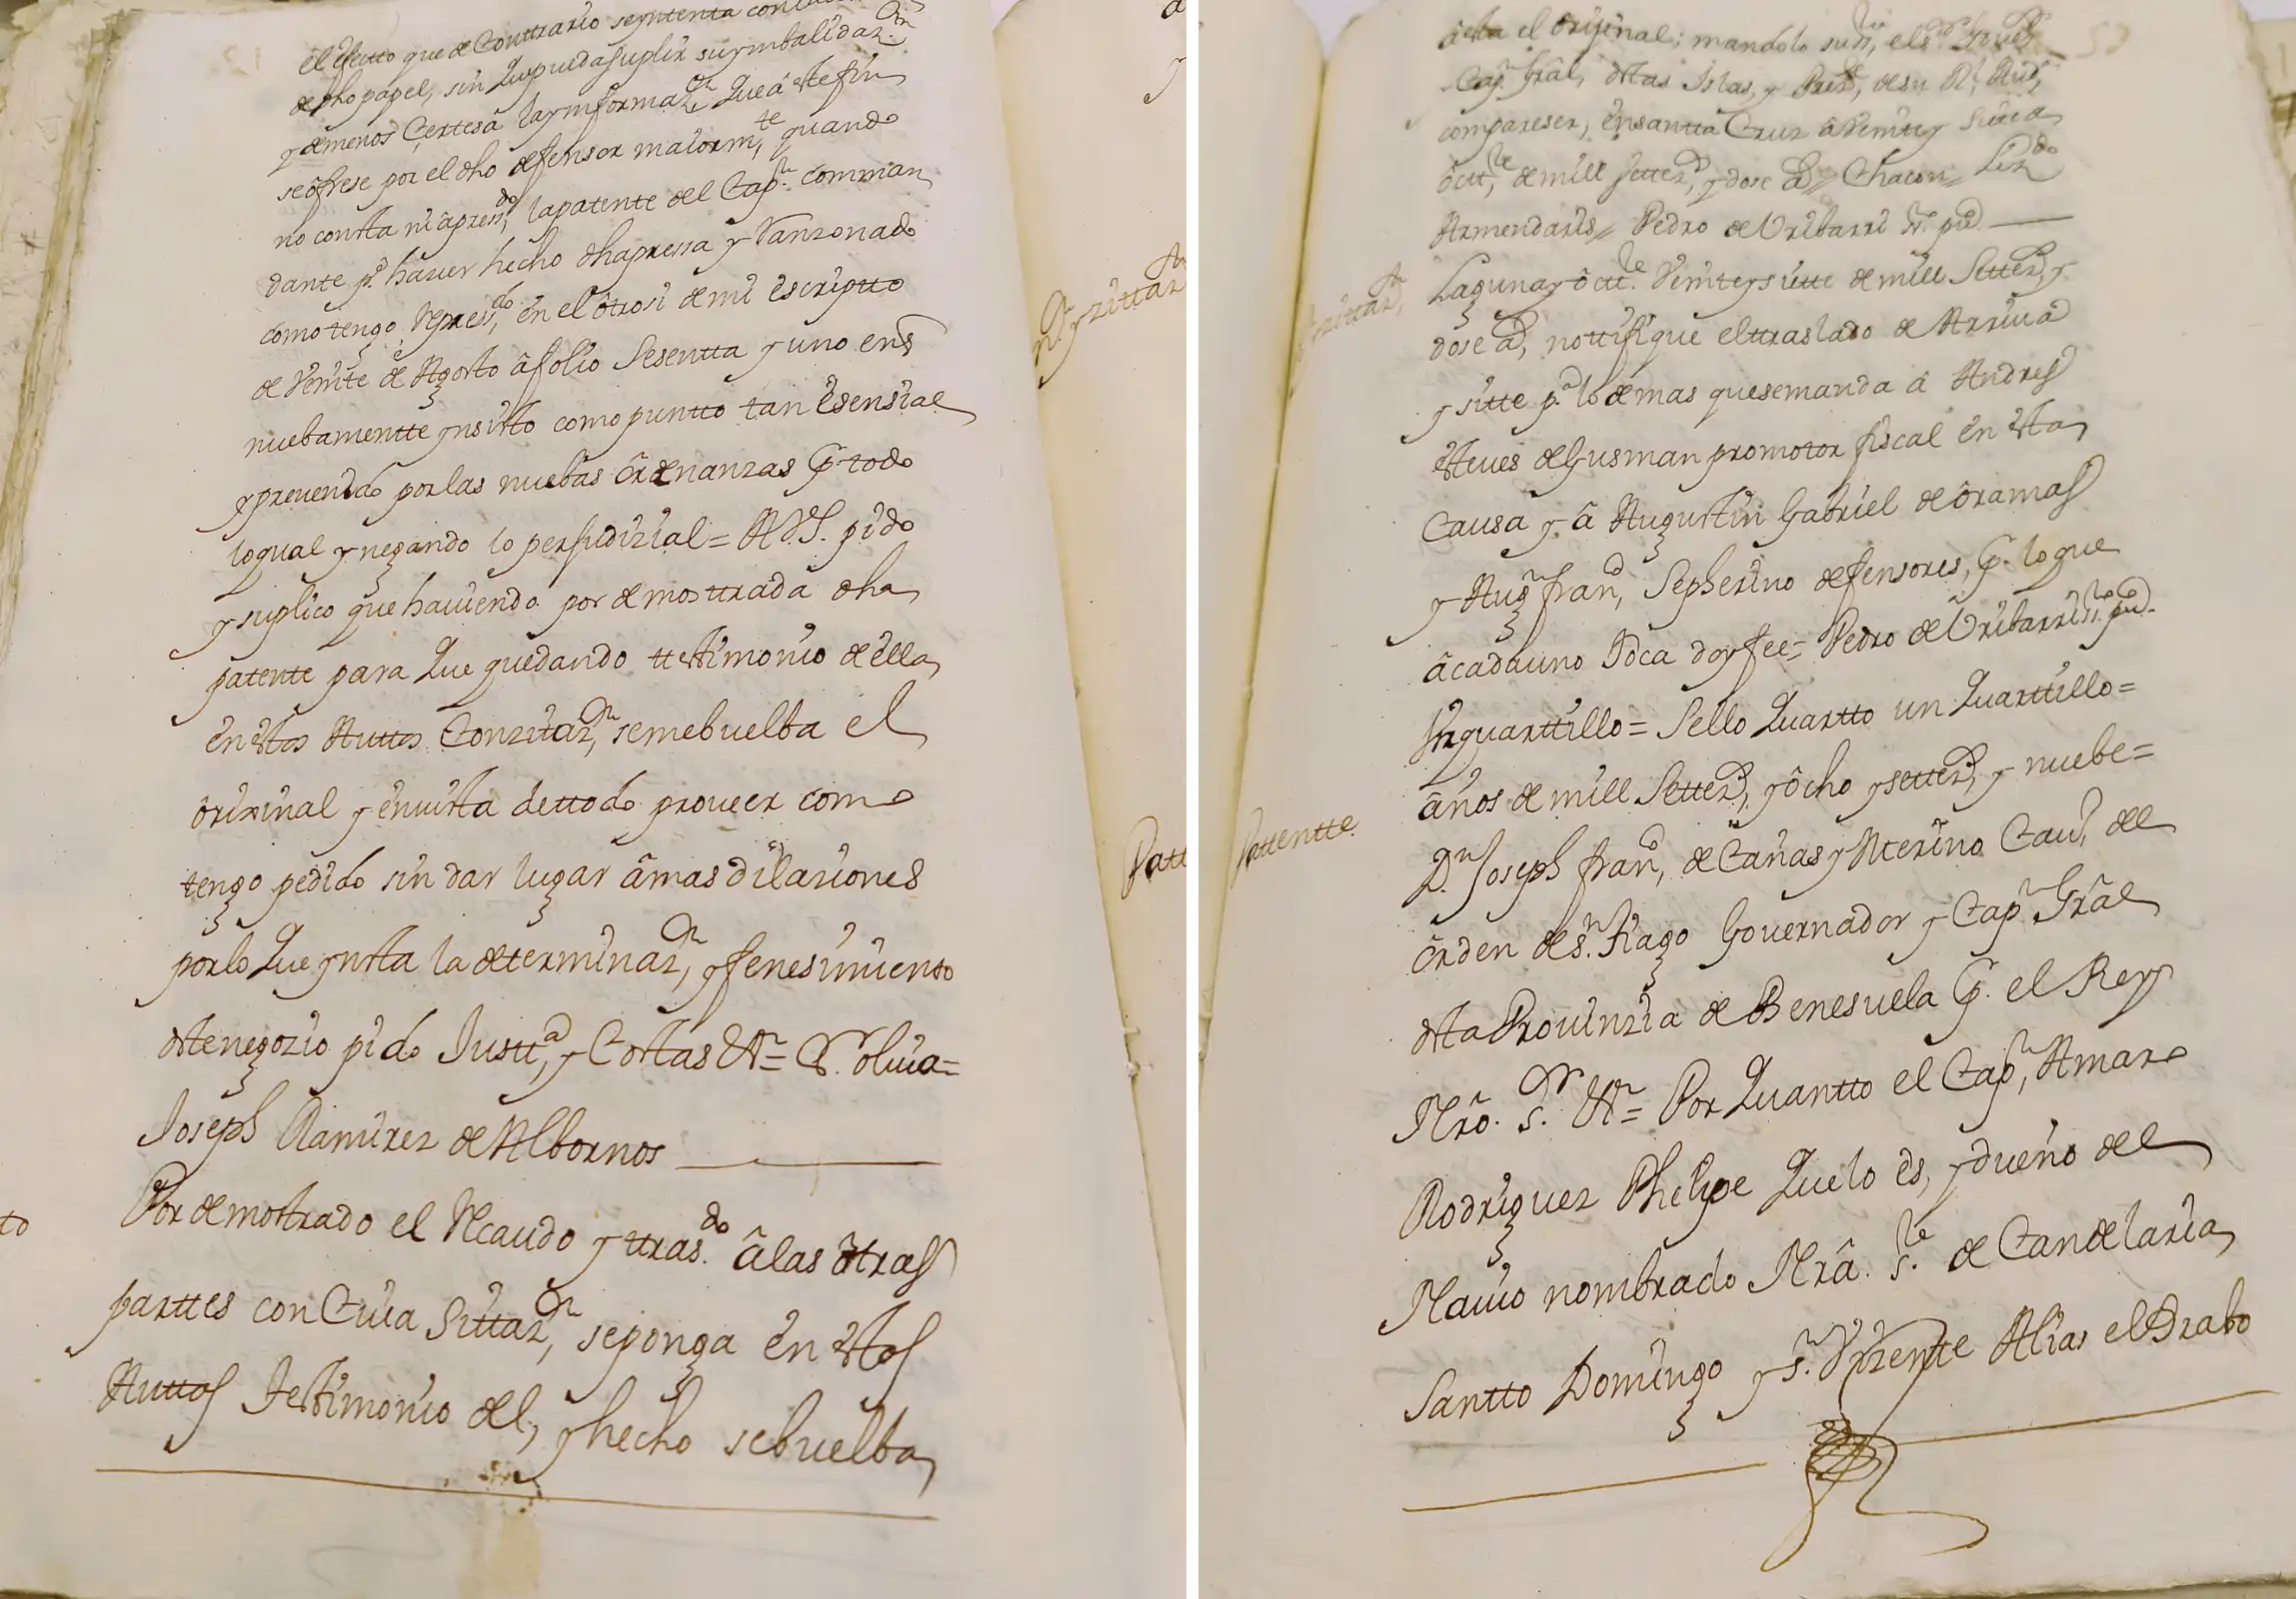 el efecto que de Conttrario se yntenta con
de dho papel, sin Que pueda suplir su ymbalidaz.on
y de menos Çertesa la ynformaz.on Que â este fin
se ôfrese por el dho defensor maiorm.te quando
no consta ni â presen.do la patente del Cap.n comman
dante p.a haver hecho dha pressa y Ranzonado
como tengo Repress.do en el ôtrosi de mi escriptto
de Veinte de Agosto â folio Sesentta y uno en q
nuebamentte ynsisto como puntto tan esensial
y prevenido por las nuebas ôrdenanzas P. todo
lo qual y negando lo perjudizial = A V.S. pido
y suplico que haviendo por demosttrada dha
patente para Que quedando testtimonio de ella
en esttos Auttos Conzitaz.on, se me buelba el
ôrixinal y en vista dettodo proveer como
tengo pedido sin dar lugar â mas dilaziones
por lo Que ynsta la determinaz.on, y fenesimiento
deste negozio pido Justt.a, y Costtas &.a = Oliva =
Joseph Ramirez de Albornos
Por demostrado el Recaudo y ttras.do â las ôtras
parttes con Cuia Sittaz.on, se ponga en estos
Auttos Testtimonio del, y hecho se buelba
to
a esta el ôrijinal; mandolo su S.ria, el s.r
Cap.n Grâl, destas Islas, y Presi.te, de su R.l Aud.a,
compareser, en santta Cruz â Veinte y Siete
ôctt.re de mill Settez.s, y dose a.s // Chacon = Liz.do
Armendaris // Pedro de Uribarri ss.no pu.co
N. y zittaz.on
Laguna y ôctt.re Veinte y siette de mill Settez.s, y
dose a.s, nottifique el traslado de Arriva
y sitte p.a lo demas que se manda â Andres
esteves de Gusman promotor fiscal en esta
Causa y â Augustin Gabriel de ôramas
y Aug.n fran.co, Sepherino defensores, P. lo que
â cada uno Toca doy fee = Pedro de Uribarri ss.no pu.co
Un quarttillo = Sello Quartto un Quarttillo =
Pattentte
años de mill Settez.s, y ôcho y settez.s, y nuebe =
D.n Joseph fran.co, de Cañas y Merino Cav.o del
ôrden de s.n Tiago Governador y Cap.n Grâl
desta Provinzia de Benesuela P. el Rey
Nrô. s.r &.a = Por Quantto el Cap.n, Amaro
Rodriguez Phelipe Que lo es, y dueño del
Navio nombrado Nrâ. s.ra de Candelaria
Santto Domingo y s.n Vizente Alias el Brabo